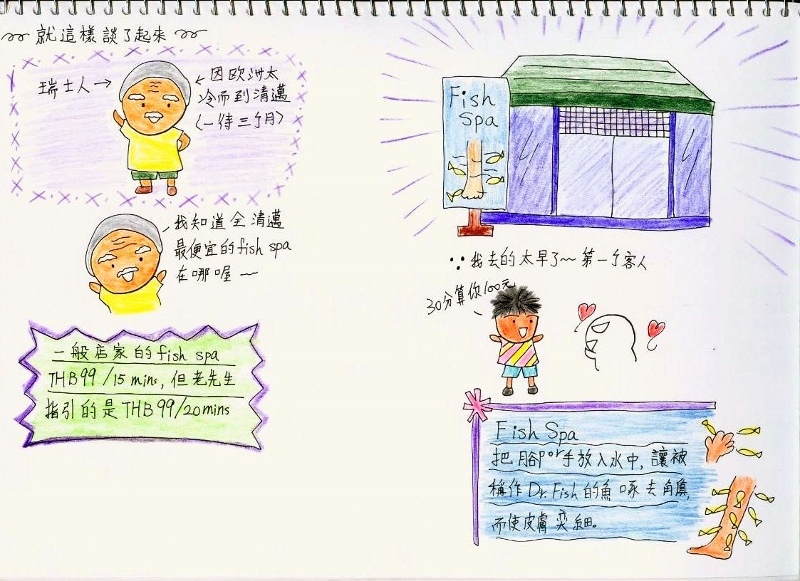 就這樣談了起來
瑞士人
因歐洲太
冷而到清邁
(一待三个月)
我知道全清邁
最便宜的fish spa
在哪喔～
一般店家的fish spa
THB99/15 mins, 但老先生
指引的是THB99/20mins
Fish
Spa
∵我去的太早了～第一个客人
30分算你100元
Fish Spa
把腳or手放入水中, 讓被
稱作Dr. Fish的魚啄去角質,
而使皮膚更細。